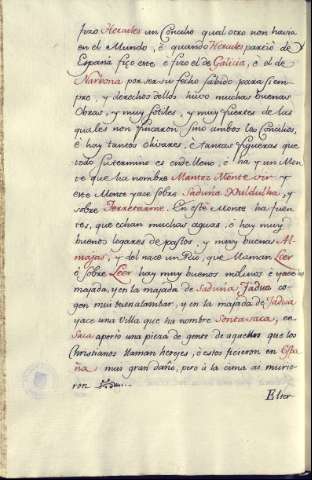 fizo Hercules un Concilio qual otro non havia
en el Mundo, é quando Hercules pareció de
España fiço este é fizo el de Galicia, é el de
Narbona por ser su fecho sabido para siem-
pre, y derechos dellos huvo muchas buenas
Obras, y muy sotiles, y muy fuertes de las
quales non fincaron, sino ambos los Concilios,
é hay tantos olivares, é tantas figueras que
todo su termino es ende lleno, é ha y un Mon-
te que ha nombre Montes Monte vir y
este Monte yace sobre Saduña, y
sobre Ferretanne. En este Monte ha fuen-
tes, que echan muchas aguas, é hay muy
buenos logares de pastos, y muy buenas Al-
majas, y del nace un Rio, que llaman Leer
é sobre Leer hay muy buenos molinos é yace
majada, y en la majada de Saduña, Jadua co-
gen mui buen alambar, y en la majada de Jadua
yace una Villa que ha nombre Santa saca, en
Saca aportó una pieza de gente de aquellos que los
Christianos llaman hereges, é estos ficieron en Espa-
ña mui gran daño, pero á la cima as murie-
ron